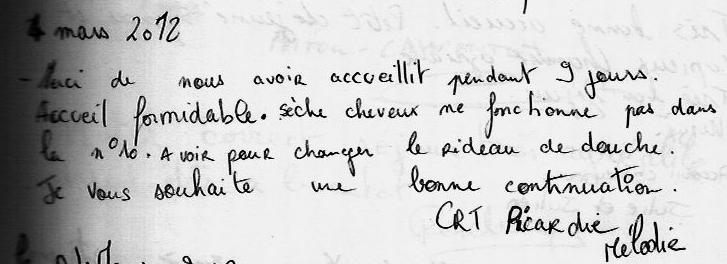 1 mars 2012
- Merci de nous avoir accueillit pendant 9 jours.
Accueil formidable. sèche cheveux ne fonctionne pas dans
la n°10. A voir pour changer le rideau de douche.
Je vous souhaite une bonne continuation.
CRT Picardie
Mélodie